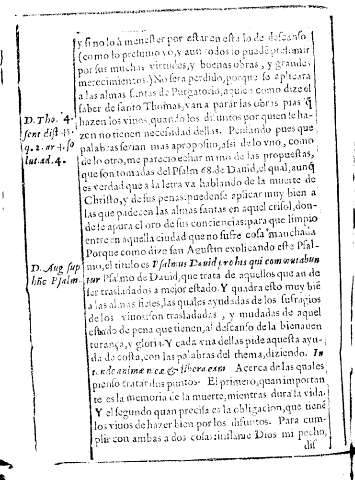 y si no lo à menester por estar en esta lo de descanso
(como lo presumo yo, y aun todos lo puedē presumir
por sus muchas virtudes, y buenas obras, y grandes
merecimientos.) No sera perdido, porque se aplicara
a las almas santas de Purgatorio, aquiē como dize el
saber de santo Thomas, van a parar las obras pias q̄
hazen los vivos, quando los difuntos por quien se ha-
zen no tienen necesidad dellas. Pensando pues que
palabras serian mas aproposito, assi de lo vno, como
de lo otro, me parecio echar mano de las propuestas,
que son tomadas del Psalm 68. de Dauid, el qual, aunq̄
es verdad que a la letra va hablando de la muerte de
Christo, y de sus penas. puedense aplicar muy bien a
las que padecen las almas santas en aquel crisol, don-
de se apura el oro de sus conciencias: para que limpio
entre en aquella ciudad que no sufre cosa manchada
Porque como dize san Agustin explicando este Psal-
mo, el titulo es Psalmus Dauid pro his qui commutabun
tur Psalmo de Dauid, que trata de aquellos que an de
ser trasladados a mejor estado. Y quadra esto muy biē
a las almas fieles, las quales ayudadas de los sufragios
de los viuos son trasladadas, y mudadas de aquel
estado de pena que tienen, al descanso de la bienauen
turança, y gloria. Y cada vna dellas pide aquesta ayu-
da de costa, con las palabras del thema, diziendo. In
tende animæ meæ & libera eam Acerca de las quales
pienso tratar dos puntos. El primero, quan importan
te es la memoria de la muerte, mientras dura la vida.
Y el segundo quan precisa es la obligacion, que tienē
los viuos de hazer bien por los difuntos. Para cum-
plir con ambas a dos cosas: instame Dios mi pecho,
dif
D. Tho. 4.
sent dist 45.
q. 2. ar 4. so
lut ad. 4.
D. Aug sup
hūc Psalm